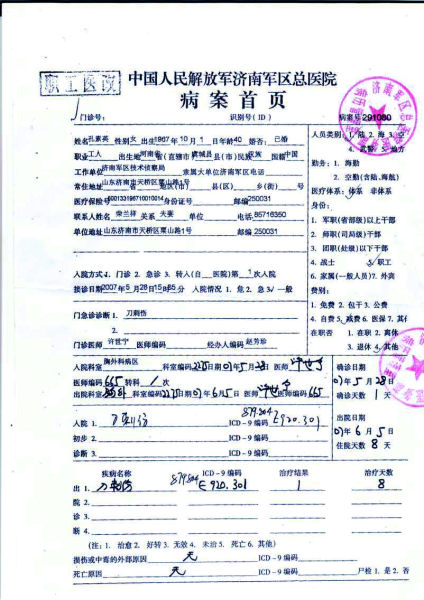 职工医改
中国人民解放军济南军区总医院
病案首页
门诊号: 识别号(ID) 病案号 291080
姓名 孔素英 性别 女 出生1967年10月1日年龄40 婚否: 已婚
职业 工人 出生地 河南省(直辖市)虞城县(市)民族 汉族 国籍 中国
工作单位 济南军区技术侦察局 隶属大单位济南军区电话
常住地址 山东济南市天桥区粟山路1号 县(区) 乡(街) 号
医疗保险号 身份证号 邮编 250031
联系人姓名 荣兰祥 关系 夫妻 单位 电话 85716350
单位地址 山东济南市天桥区粟山路1号 邮编 250031
人员类别: 1. 陆 2. 海 3. 空
4. 武警 5. 地方
勤务: 1. 海勤
2. 空勤(含陆.海航)
医疗体系: 体系 非体系
身份:
1. 军职(省部级)以上干部
2. 师职(司局级)干部
3. 团职(处级)以下干部
4. 战士 5. 职工
6. 家属(一般人员) 7. 外宾
费别:
1. 免费 2. 包干 3. 公费
4. 自费 5. 减费 6. 医保 7. 其
在职否 1. 在职 2. 离休
3. 退休 4. 其他
入院方式 4. 门诊 2. 急诊 3. 转入(自 医院)第 1 次入院
接诊日期 2007年5月28日15时 分 入院情况 1. 危 2. 急 3/ 一般
门急诊诊断 1. 刀刺伤
2.
门诊医师 许世宁 医师编码 经办人编码 赵芳珍
入院科室 胸外科病区 科室编码 日期 07年5月28日 医师
医师编码 665 转科 1 次
出院科室 科室编码 日期 07年6月5日 医师 医师编码 665
确诊日期
07年5月28日
确诊天数 1 天
出院日期
07年6月5日
住院天数 8 天
入院 1. 刀刺伤 ICD-9 编码 879.804 E920.301
初步 2. ICD-9 编码
诊断 3. ICD-9 编码
疾病名称 ICD-9 编码 治疗结果 治疗天数
出 1. 刀刺伤 879.804 E920.301 1 8
院 2.
诊 3.
断 4.
(注: 1. 治愈 2. 好转 3. 无效 4. 未治 5. 死亡 6. 其他)
损伤或中毒的外部原因 无 ICD-9 编码
死亡原因 无 ICD-9 编码 尸检 1. 是 2. 否